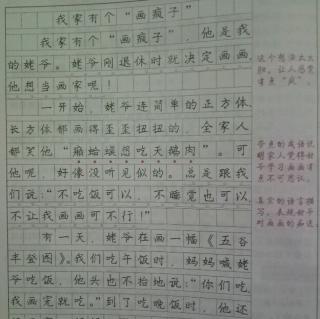 我家有个“画疯子”
我家有个“画疯子”，他是我
的姥爷。姥爷刚退休时就决定画画，
他想当画家呢！
一开始，姥爷连简单的正方体、
长方体都画得歪歪扭扭的，全家人
都笑他“癞蛤蟆想吃天鹅肉”。可
他呢，好像没听见似的。总是跟我
们说：“不吃饭可以，不睡觉也可以，
不让我画画可不行！”
有一天，姥爷在画一幅《五谷
丰登图》。我们吃午饭时，妈妈喊姥
爷吃饭，他头也不抬地说：“你们吃，
我画完就吃。”到了吃晚饭时，他还
这个想法太大
胆，让人感觉
有点“疯”。
夸张的成语说
明家人觉得姥
爷学习画画有
点不可思议。
真实的语言描
写，表现姥爷
对画画的痴迷